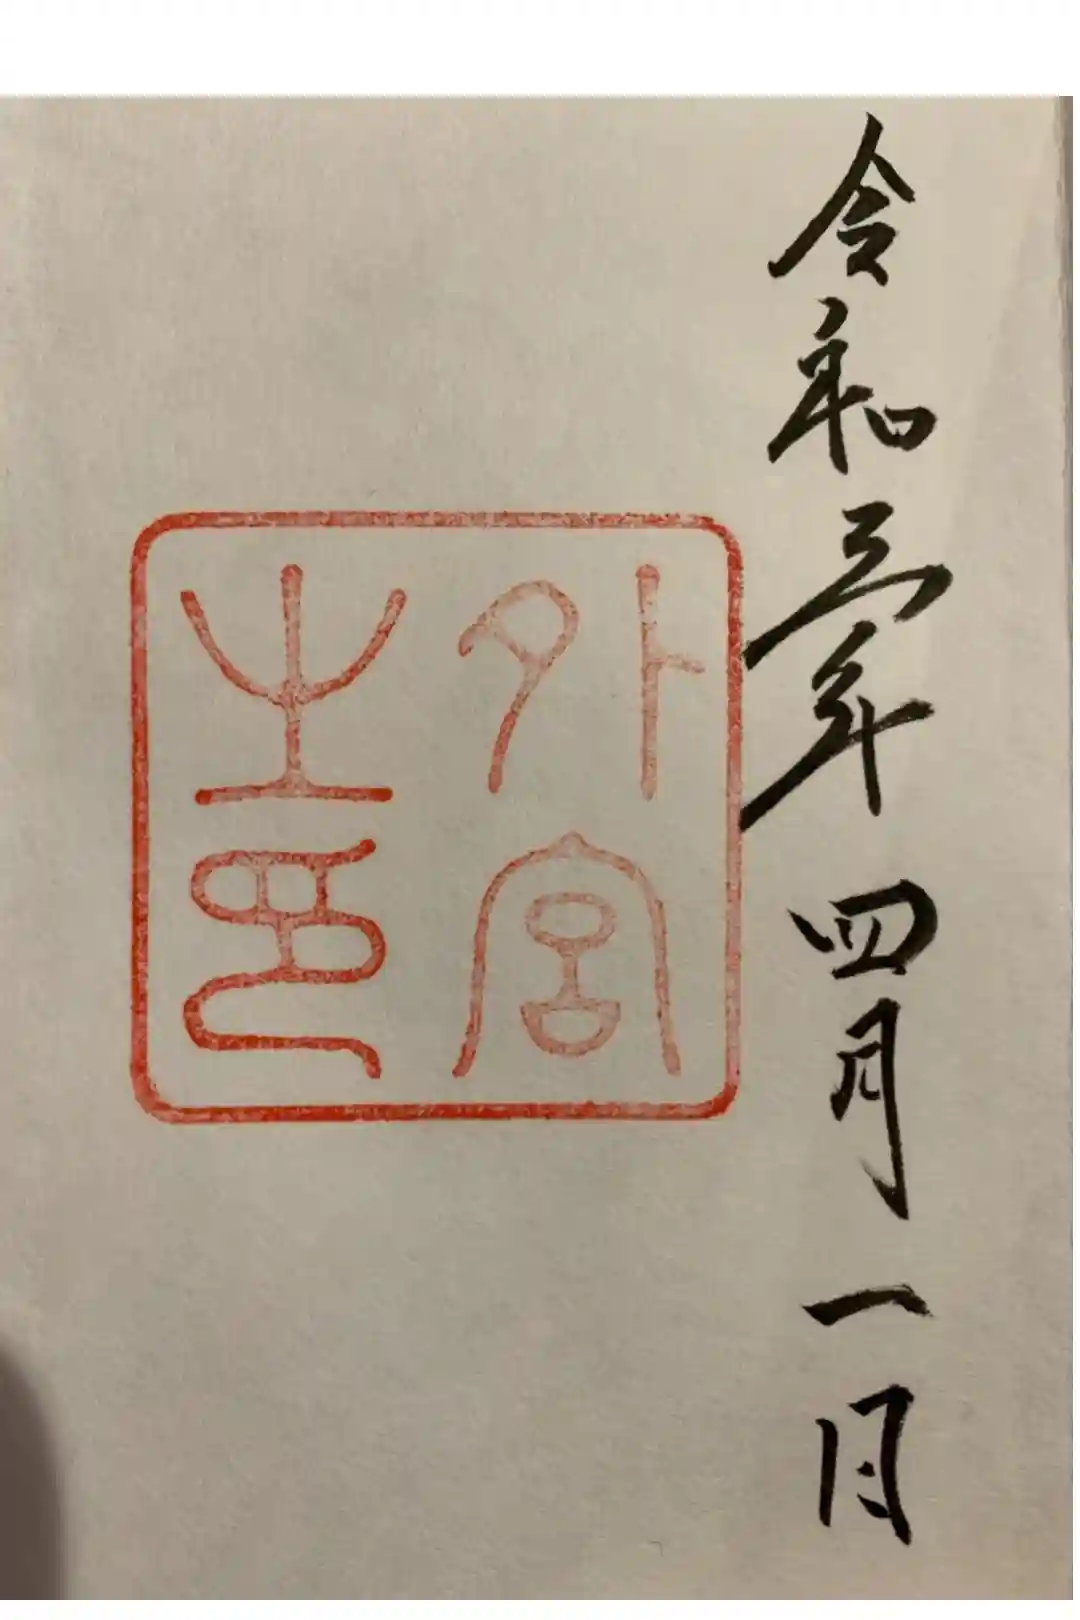 令和三年四月一日
外宮之印